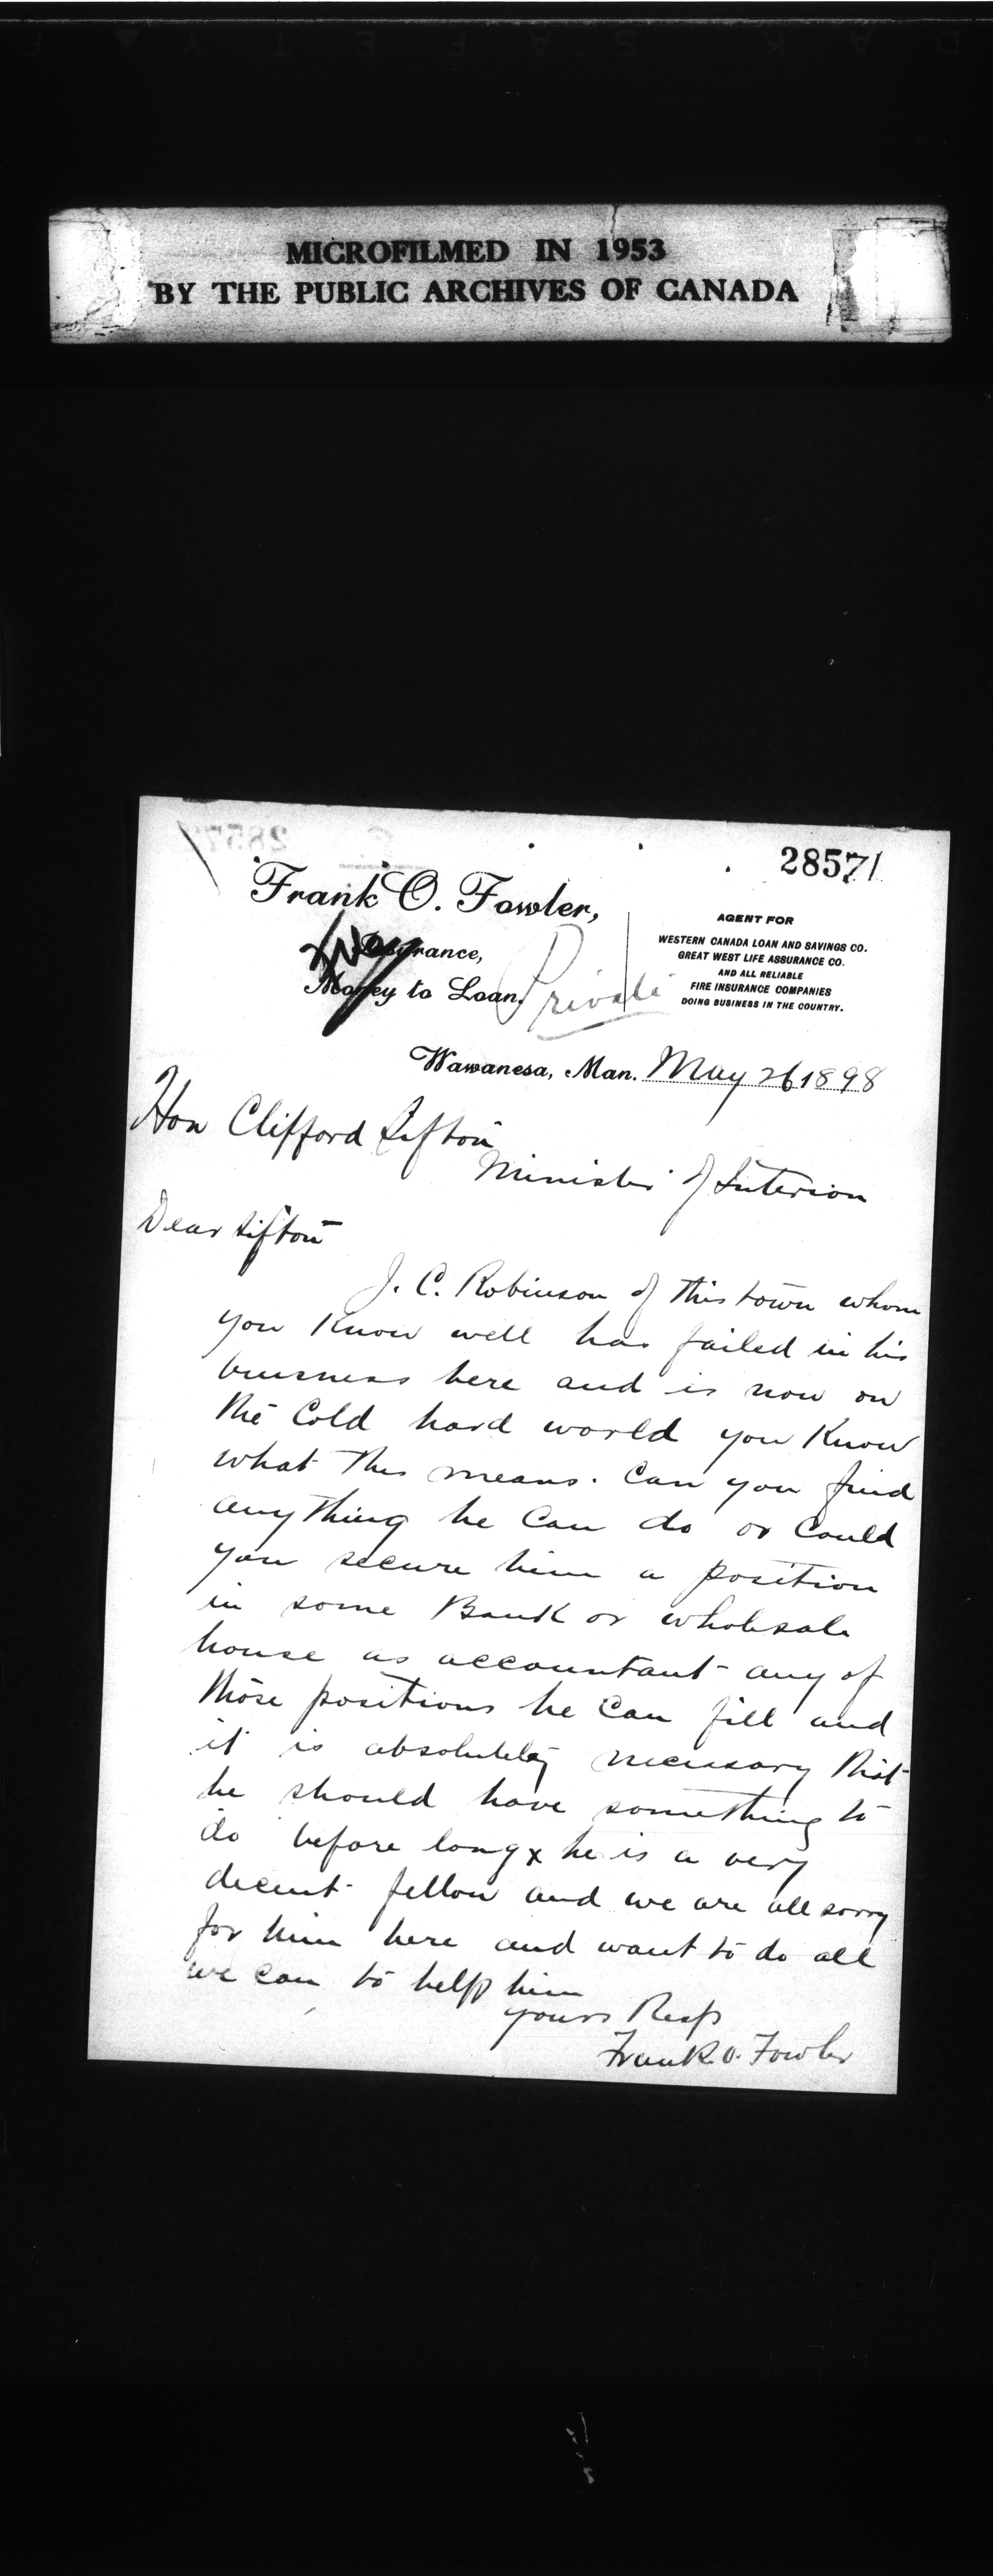 MICROFILMED IN 1953
BY THE PUBLIC ARCHIVES OF CANADA
28571
Frank O. Fowler,
Insurance,
Money to Loan.
Private
AGENT FOR
WESTERN CANADA LOAN AND SAVINGS CO.
GREAT WEST LIFE ASSURANCE CO.
AND ALL RELIABLE
FIRE INSURANCE COMPANIES
DOING BUSINESS IN THE COUNTRY.
Wawanesa, Man. May 26 1898
Hon Clifford Sifton
Minister of Interior
Dear Sifton
J. C. Robinson of this town whom
you know well has failed in his
buisness here and is now on
the Cold hard world you Know
what this means. Can you find
anything he Can do or Could
you secure him a position
in some Bank or wholesale
house as accountant any of
those positions he Can fill and
it is absolutely necessary that
he should have something to
do before long x he is a very
decent fellow and we are all sorry
for him here and want to do all
we can to help him
yours Resp
Frank O. Fowler